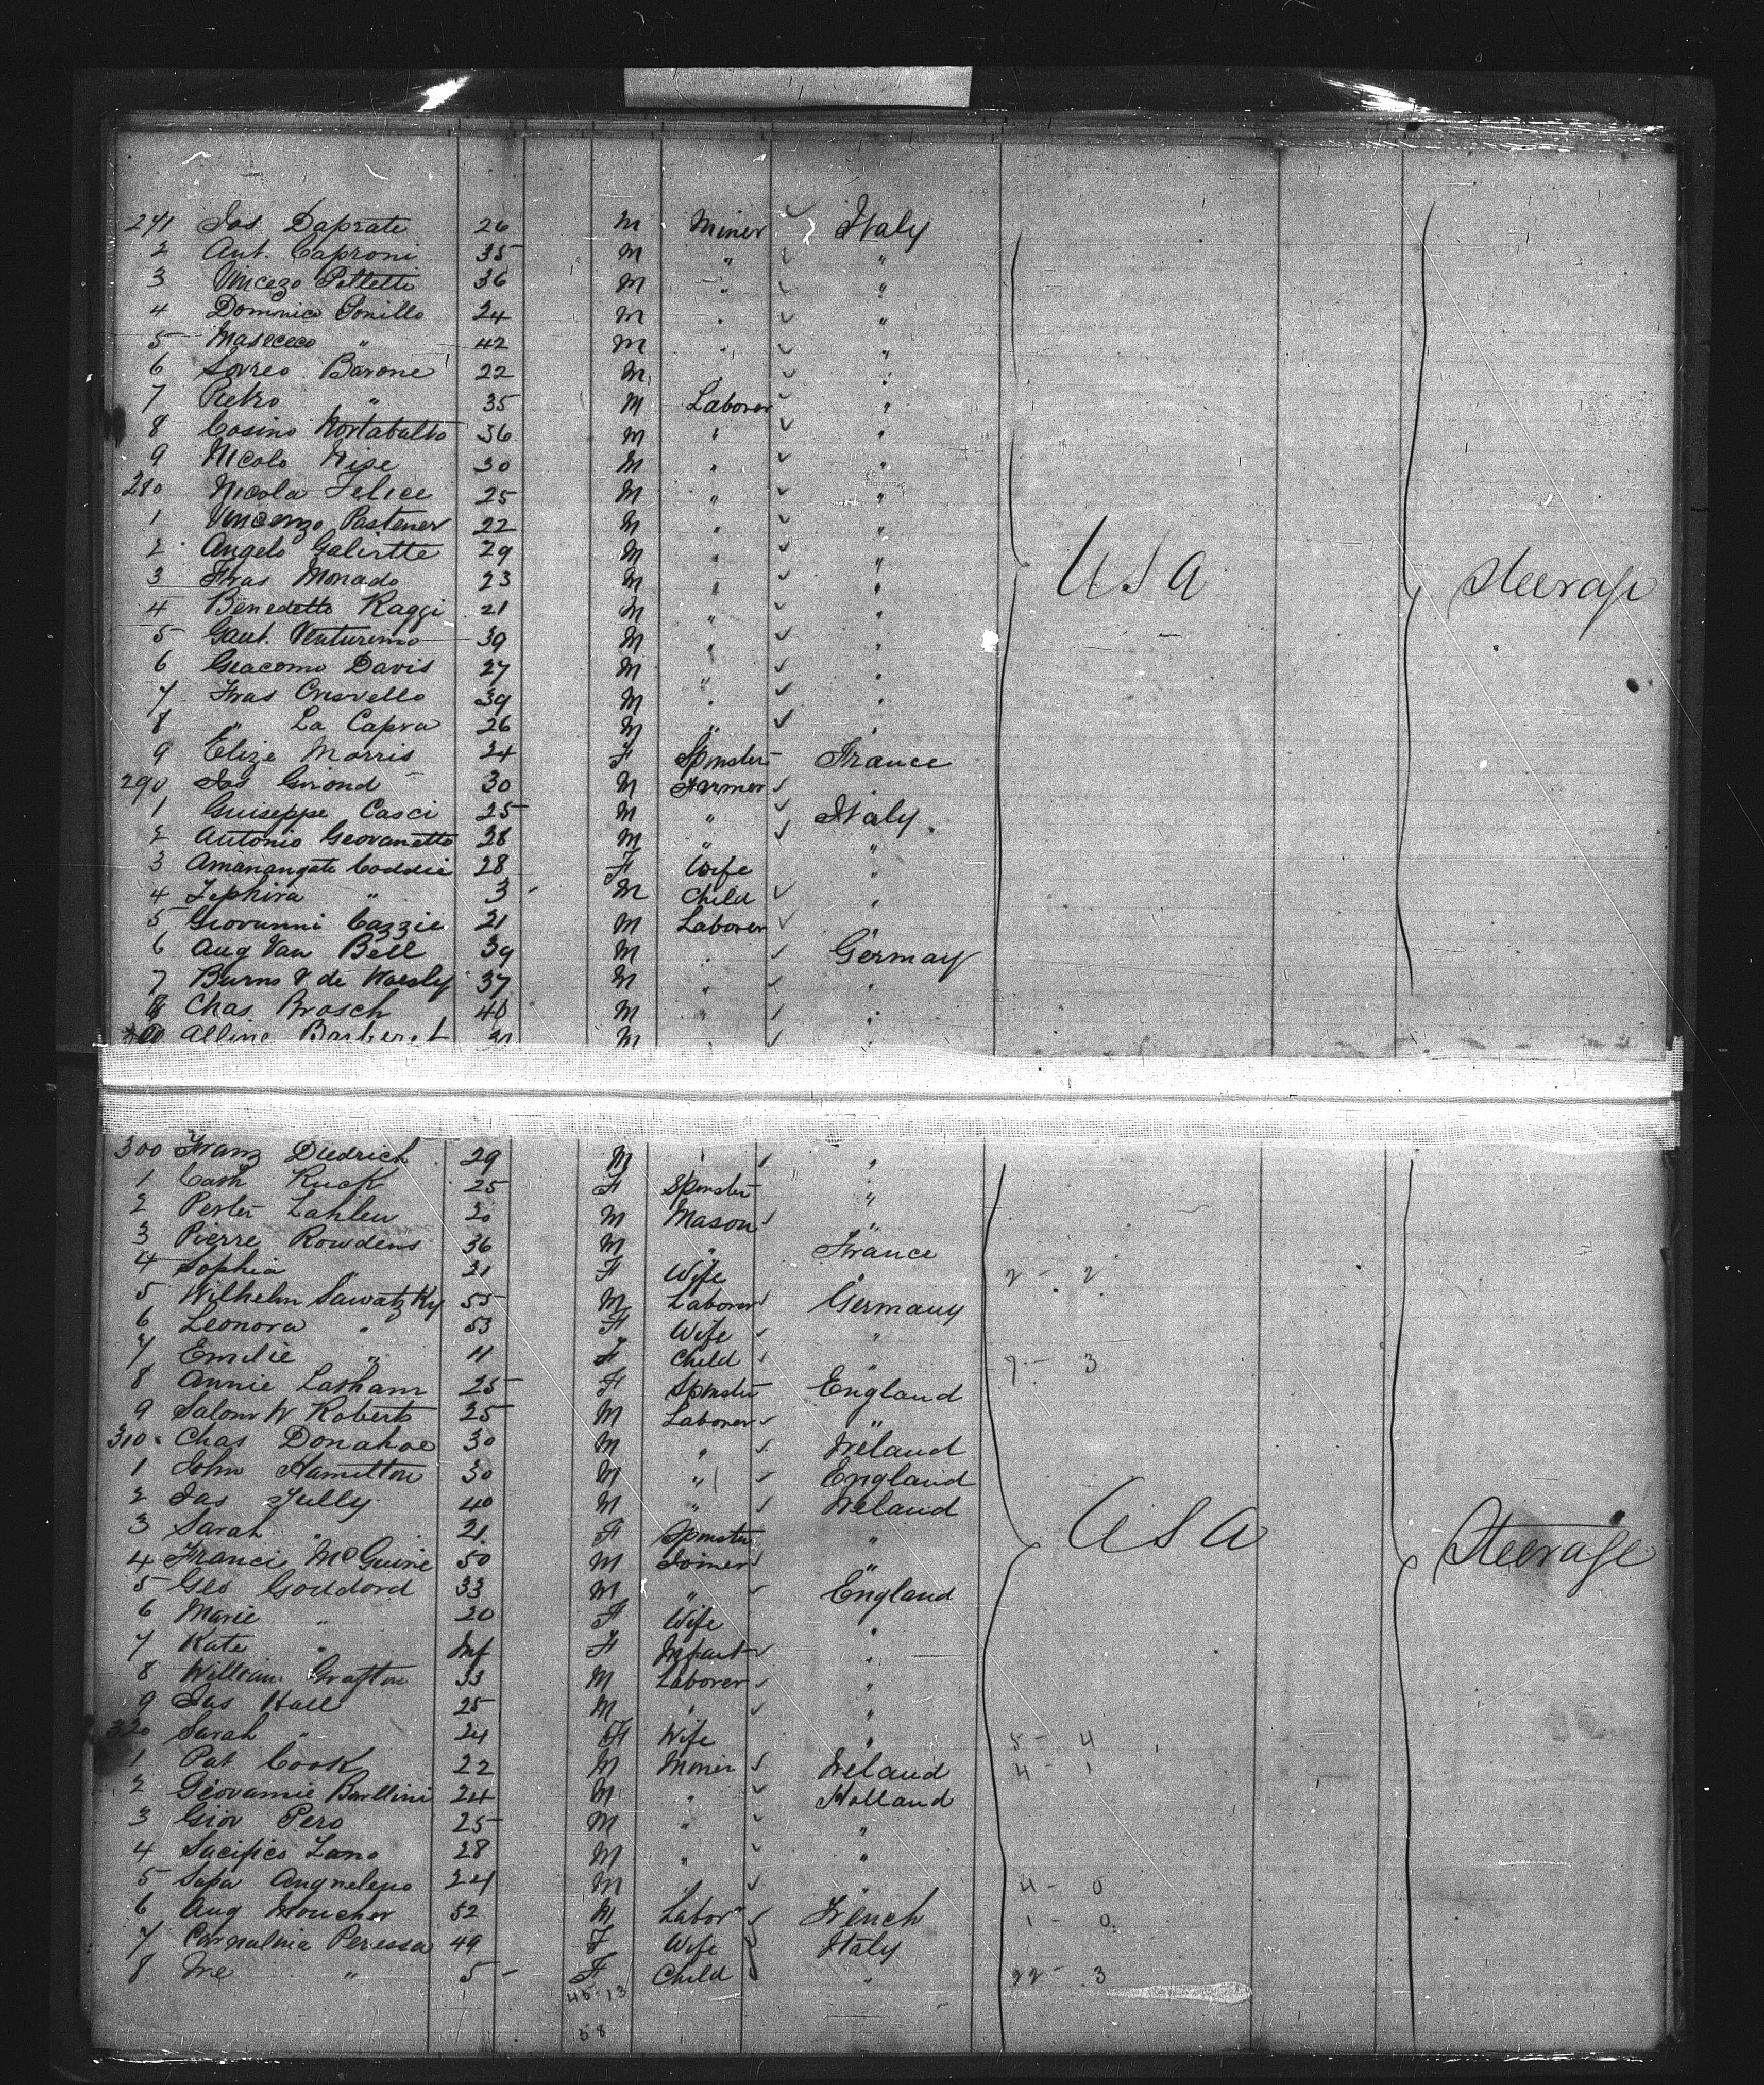 271 Jos. Daprate 26 M Miner Italy
2 Ant. Caproni 35 M " "
3 Vincezo Pelletti 36 M " "
4 Dominico Ponillo 24 M " "
5 Masececo " 42 M " "
6 Sovreo Barone 22 M " "
7 Pietro " 35 M Laborer "
8 Cosino Mortabalto 36 M " "
9 Nicolo Nise 30 M " "
280 Nicola Felice 25 M " "
1 Vincenzo Pastener 22 M " "
2 Angelo Galirtte 29 M " "
3 Fras Monado 23 M " " USA Steerage
4 Benedetto Raggi 21 M " "
5 Gaut. Venturemo 39 M " "
6 Giacomo Davis 27 M " "
7 Fras Crisvello 39 M " "
8 " La Capra 26 M " "
9 Elize Morris 24 F Spinster France
290 Jos Girond 30 M Farmer "
1 Guiseppe Casci 25 M " Italy
2 Antonio Geovanetto 28 M " "
3 Amanangate Coddie 28 F Wife "
4 Zephira " 3 M Child "
5 Giovanni Cazzie 21 M Laborer "
6 Aug Van Bell 39 M " Germany
7 Burns V de Woesly 37 M " "
8 Chas. Brosch 40 M " "
Alline Barberet M
300 Franz Diedrich 29 M " "
1 Cath Ruck 25 F Spinster "
2 Pester Lahleu 20 M Mason "
3 Pierre Rowdens 36 M " France
4 Sophia " 21 F Wife " 2 - 2
5 Wilhelm Sawatzky 55 M Laborer Germany
6 Leonora " 53 F Wife "
7 Emilie " 11 F Child " 7 - 3
8 Annie Latham 25 F Spinster England
9 Salom W Roberts 25 M Laborer "
310 Chas Donahoe 30 M " Ireland
1 John Hamilton 30 M " England
2 Jas Tully 40 M " Ireland
3 Sarah " 21 F Spinster " USA
4 Franci McGuire 50 M Joiner " Steerage
5 Geo Goddord 33 M " England
6 Marie " 20 F Wife "
7 Kate " Inf F Infant "
8 William Grafton 33 M Laborer "
9 Jas Hall 25 M " "
320 Sarah " 24 F Wife " 5 - 4
1 Pat Cook 22 M Miner Ireland 4 - 1
2 Giovannie Barllini 24 M " Holland
3 Giov Pero 25 M " "
4 Sacifico Zano 28 M " "
5 Sapa Angneleno 24 M " " 4 - 0
6 Aug Moucher 52 M Labor" French 1 - 0
7 Carnalnia Peressa 49 F Wife Italy
8 Ine " 5 F Child " 22 - 3
45 13
58